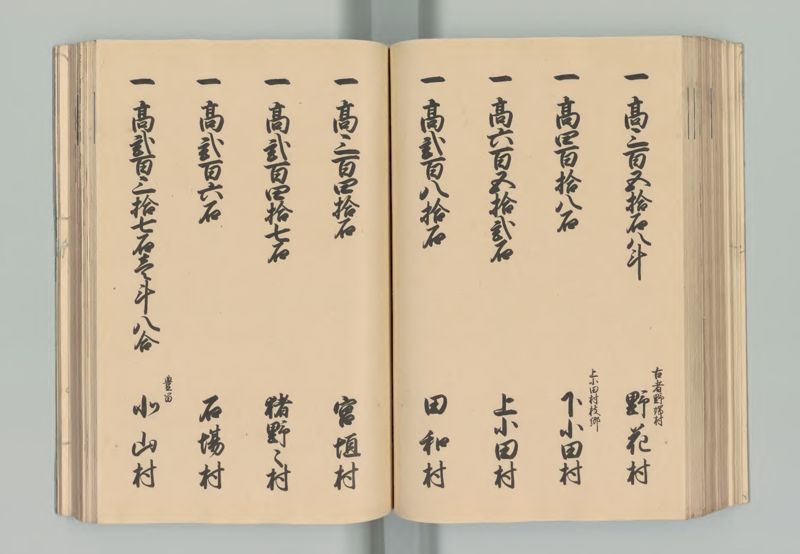 一 高三百五拾石八斗 古者野端村 野花村
一 高四百拾八石 上小田村枝郷 下小田村
一 高六百五拾弐石 上小田村
一 高弐百八拾石 田和村
一 高三百四拾石 宮垣村
一 高弐百四拾七石 猪野々村
一 高弐百六石 石場村
一 高弐百三拾七石壱斗八合 山村